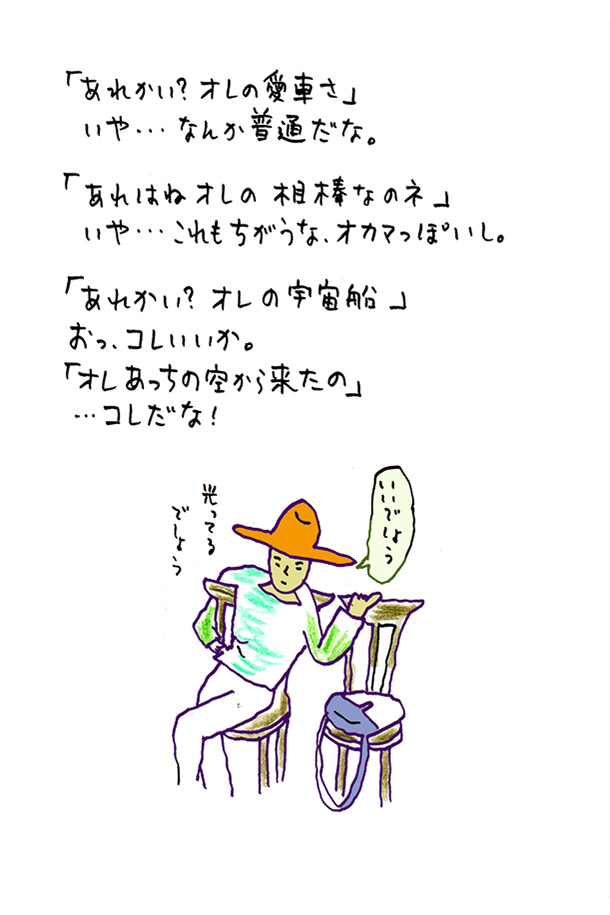 「あれかい? オレの愛車さ」
いや…なんか普通だな。
「あれはねオレの 相棒なのネ」
いや…これもちがうな、オカマっぽいし。
「あれかい? オレの宇宙船」
おっ、コレいいか。
「オレあっちの空から来たの」
…コレだな!
いいでしょう
光ってる
でしょう